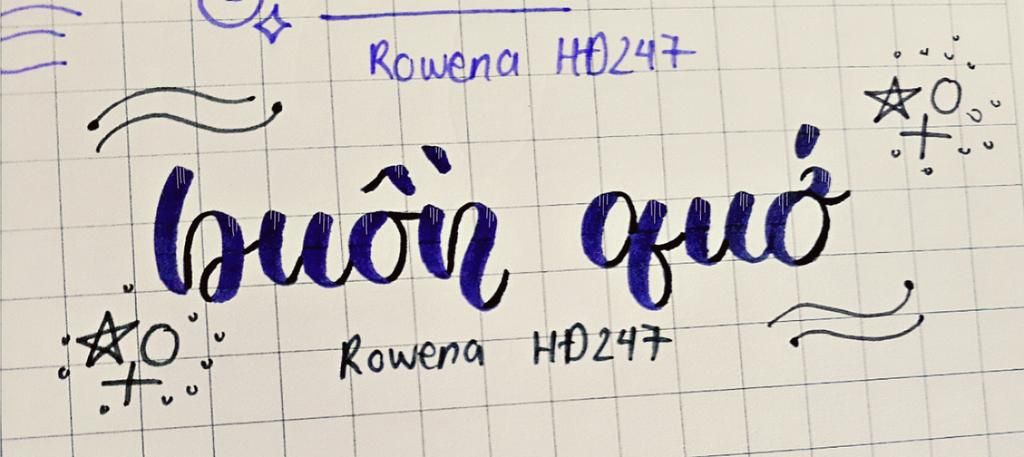 Rowena HĐ247
buồn quớ
Rowena HĐ247